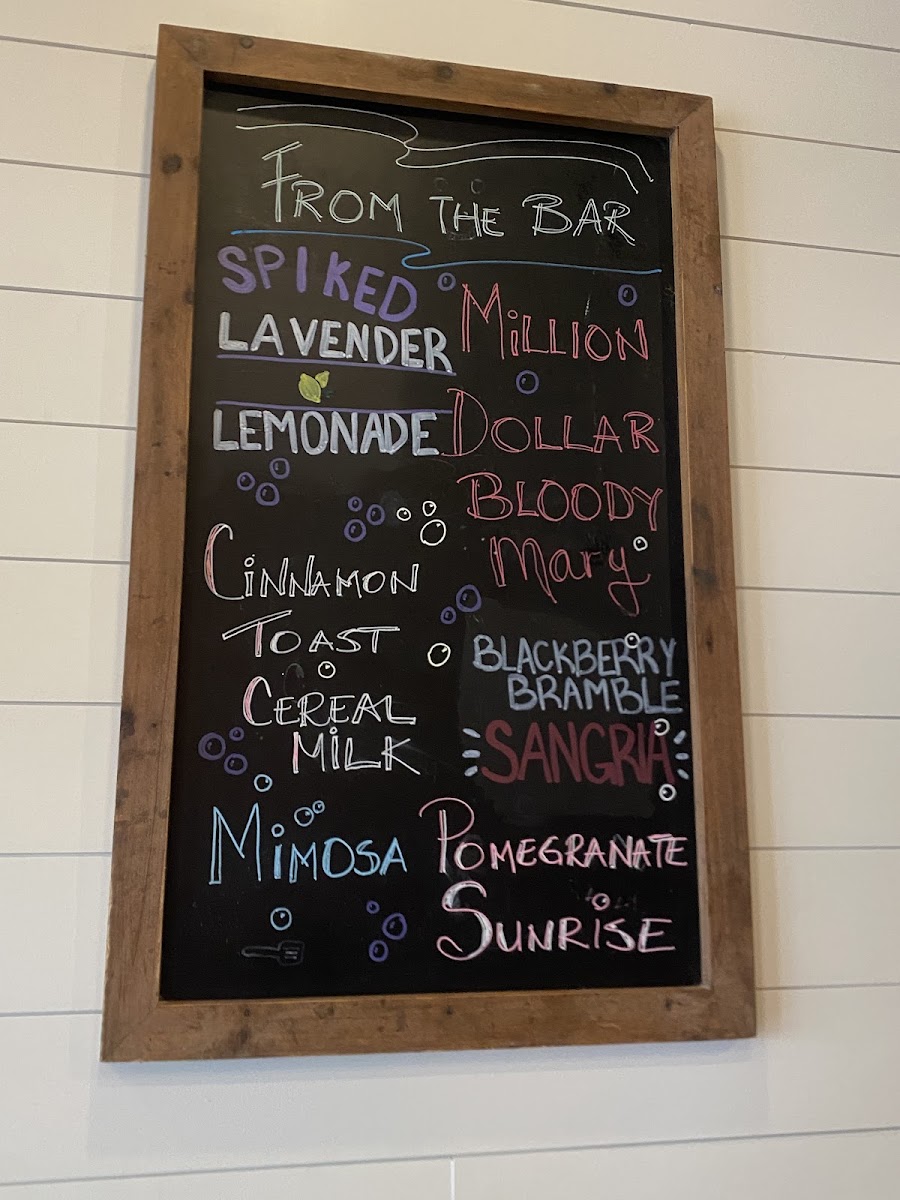 FROM THE BAR
SPIKED
LAVENDER
LEMONADE
CINNAMON
TOAST
CEREAL
MILK
MIMOSA
MILLION
DOLLAR
BLOODY
Mary
BLACKBERRY
BRAMBLE
SANGRIA
POMEGRANATE
SUNRISE